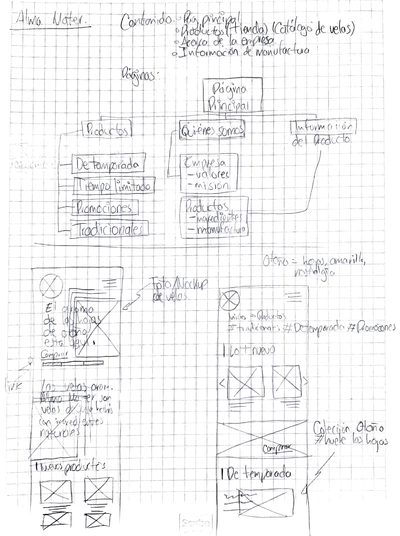 Alma Mater.
Contenido
• Pag principal
• Productos (tienda) (Catálogo de velas)
• Acerca de la empresa
• Información de manufactura
Páginas:
Página
Principal
Productos
Quiénes somos
Información
del Producto
De temporada
Tiempo limitado
Promociones
Tradicionales
Empresa
- valores
- misión
Productos
- ingredientes
- manufactura
Otoño = hojas, amarillo,
nostalgia
Foto/Mockup
de velas
El
de las hojas
de otoño
esta
Comprar
Link
Las velas
Alma Mater son
velas
con ingredientes
naturales
Nuevos productes
Inicio - Productos
#tradicionales #De temporada #Promociones
Lo + nuevo
Comprar
Colección Otoño
#huele las hojas
De temporada